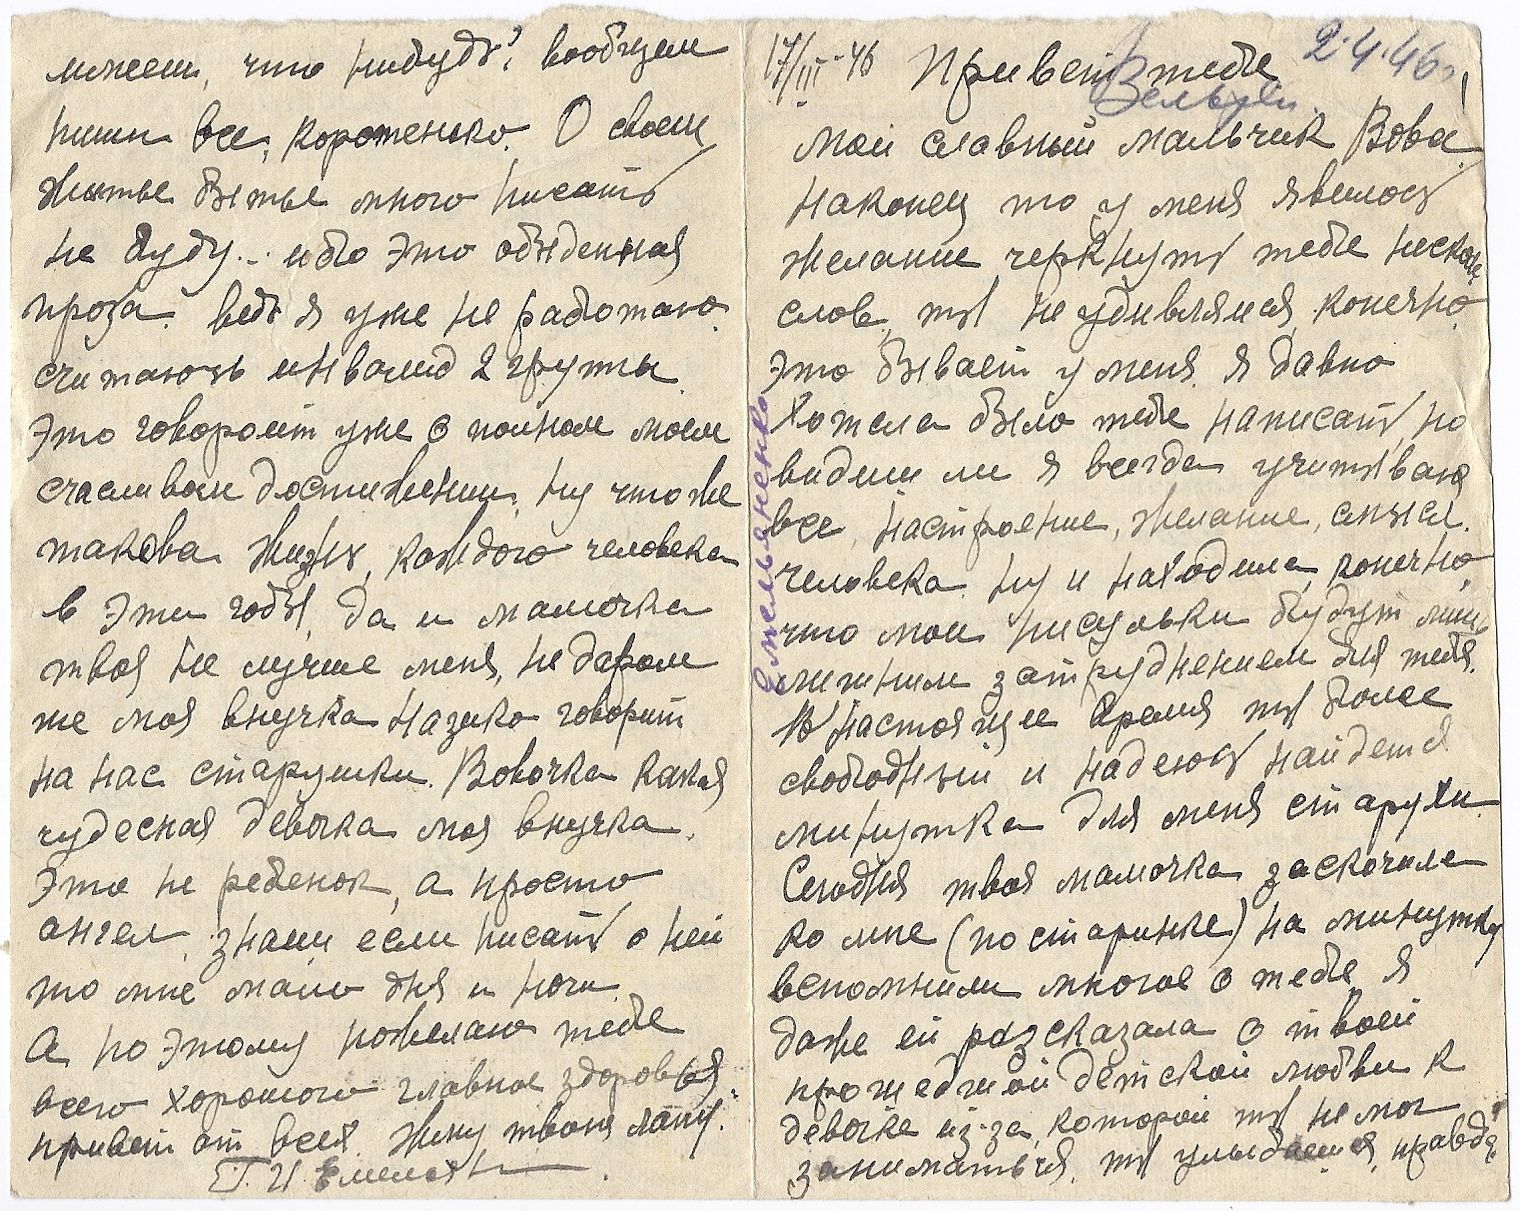 17/III-46 Привет тебе
2.4.46г.
мой славный мальчик Вова!
наконец то у меня явилось
желание черкнуть тебе несколь
слов, ты не удивляйся, конечно
это бывает у меня. Я давно
хотела было тебе написать, но
видиш ли я всегда учитываю
все, настроение, желание, смысл.
человека. Ну и находила, конечно,
что мои писульки будут лишь
лишним затруднением для тебя.
В настоящее время ты более
свободный и надеюсь найдется
минутка для меня старухи.
Сегодня твоя мамочка заскочила
ко мне (по старинке) на минутку
вспомнили многое о тебе, я
даже ей розсказала о твоей
прошедшей детской любви к
девочке из-за которой ты не мог
заниматься. ты улыбаешся, правда?
Емельяненко
можеш, что нибудь? вообщем
пиши все, коротенько. О своем
житье бытье много писать
не буду... ибо это обыденная
проза. Ведь я уже не работаю
считаюсь инвалид 2 группы.
Это говороит уже о полном моем
счасливом достижении, ну что же
такова жизнь, каждого человека
в эти годы, да и мамочка
твоя не лучше меня, не даром
же моя внучка Назико говорит
на нас старушки. Вовочка какая
чудесная девочка моя внучка.
Это не ребенок, а просто
ангел, знаш если писать о ней
то мне мало дня и ночи.
А по этому пожелаю тебе
всего хорошого главное здоровья.
привет от всех. Жму твою лапу.
Т. И Емельян